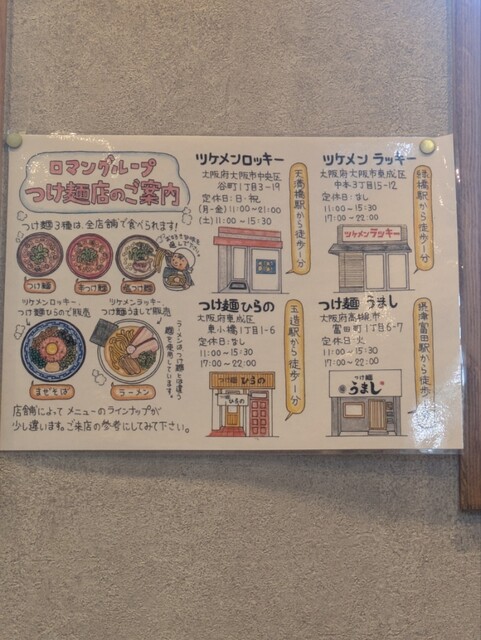 ロマングループ
つけ麺店のご案内
つけ麺3種は、全店舗で食べられます!
つけ麺
辛つけ麺
塩つけ麺
ツケメンロッキー、
つけ麺ひらのご販売
ツケメンラッキー、
つけ麺うましで販売
まぜそば
ラーメン
ラーメンは、つけ麺とは違う
麺を使用しています。
店舗によってメニューのラインナップが
少し違います。ご来店の参考にしてみて下さい。
ツケメンロッキー
大阪府大阪市中央区
谷町1丁目3-19
定休日:日・祝
(月-金)11:00~21:00
(土)11:00~15:30
天満橋駅から徒歩1分
ツケメン ラッキー
大阪府大阪市東成区
中本3丁目15-12
定休日:なし
11:00~15:30
17:00~22:00
緑橋駅から徒歩1分
ツケメンラッキー
つけ麺 ひらの
大阪府東成区
東小橋1丁目1-6
定休日:なし
11:00~15:30
17:00~22:00
玉造駅から徒歩1分
つけ麺 ひらの
ひらの
つけ麺 うまし
大阪府高槻市
富田町1丁目6-7
定休日:火
11:00~15:30
17:00~22:00
摂津富田駅から徒歩
つけ麺
うまし